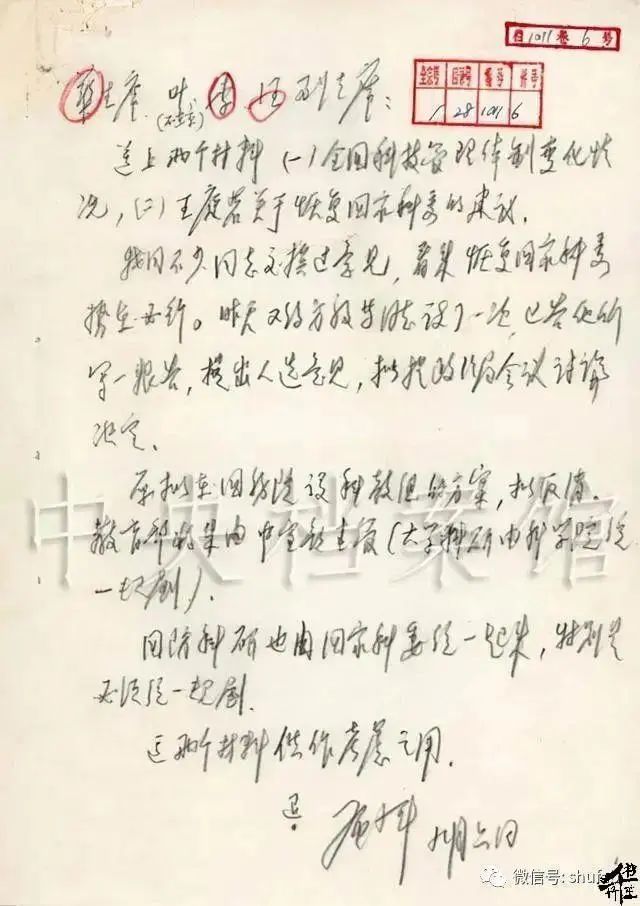 1011卷6号
全宗号 目录号 卷号 件号
1 28 1011 6
华主席 叶、李、汪副主席：
(不在京)
送上两个材料（一）全国科技管理体制变化情
况，（二）关于恢复国家科委的建议。
我同不少同志交换过意见，看来恢复国家科委
势在必行。昨天又约方毅等同志谈了一次，已告他们
写一报告，提出人选意见，拟提政治局会议讨论
决定。
原拟在国务院设科教组的方案，拟取消。
教育部将来由中宣部主管（大学科研由科学院统
一规划）。
国防科研也由国家科委统一起来，特别是
必须统一规划。
这两个材料供作考虑之用。
邓小平 九月六日
中央档案馆
微信号: shufa